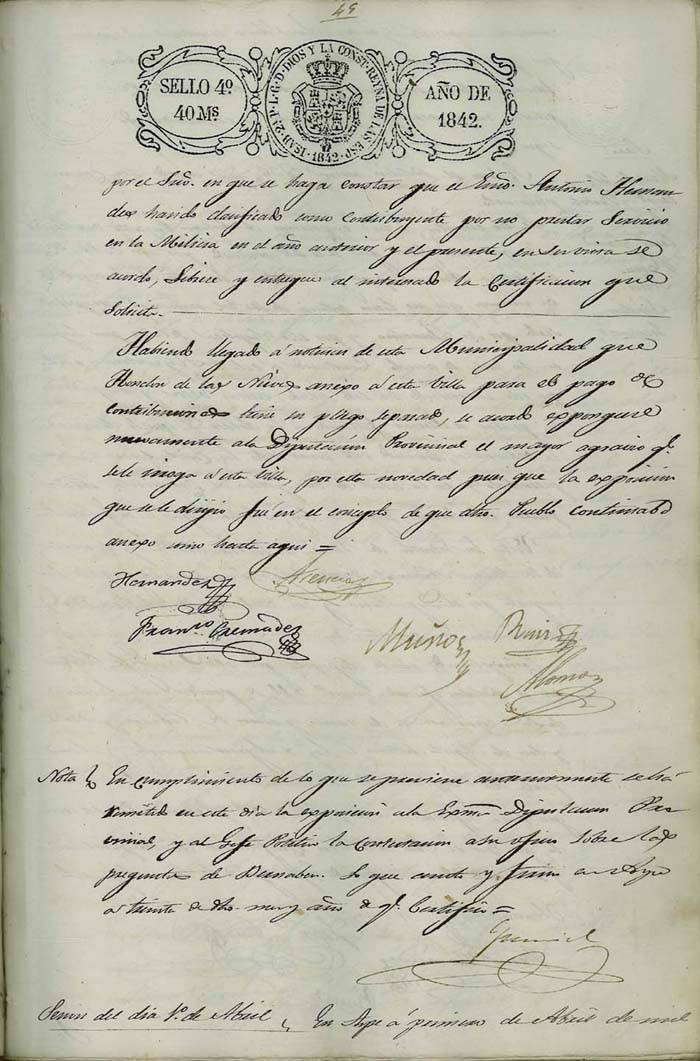 49
SELLO 4º
40 Mˢ
ISAB. 2ª P. L. G. D. DIOS Y LA CONST. REYNA DE LAS ESP. 1842
AÑO DE
1842.
por el Sño. en que se haga constar que el Antonio Hernan
dez hando clasificado como contribuyente por no prestar Servicio
en la Milicia en el año anterior y el presente, en su vista se
acordo, Libree y entregue al interesado la Certificacion que
Solicita.
Habiendo llegado á noticias de esta Municipalidad que
Hondon de las Nieves anexo á esta Villa para el pago de
contribuciones tiene un pliego separado, se acordo esponguese
nuevamente a la Diputacion Provincial el mayor agravio q.
se le iroga á esta Villa, por esta novedad pues que la exposicion
que se le dirigio fué en el concepto de que dho. Pueblo continuaba
anexo como hasta aqui =
Hernandez
Franᶜᵒ. Cremades
Muñoz
Ruiz
Alonso
Nota En cumplimiento de lo que se previene anteriormente se há
remitido en este dia la exposicion a la Exma Diputacion Pro
vincial, y al Gefe Politico la contestacion a su oficio sobre las
preguntas de Lo que anoto y firmo en Aspe
a treinta de dho. mes y año de q. Certifico =
Sesion del dia 1º. de Abril En Aspe á primero de Abril de mil